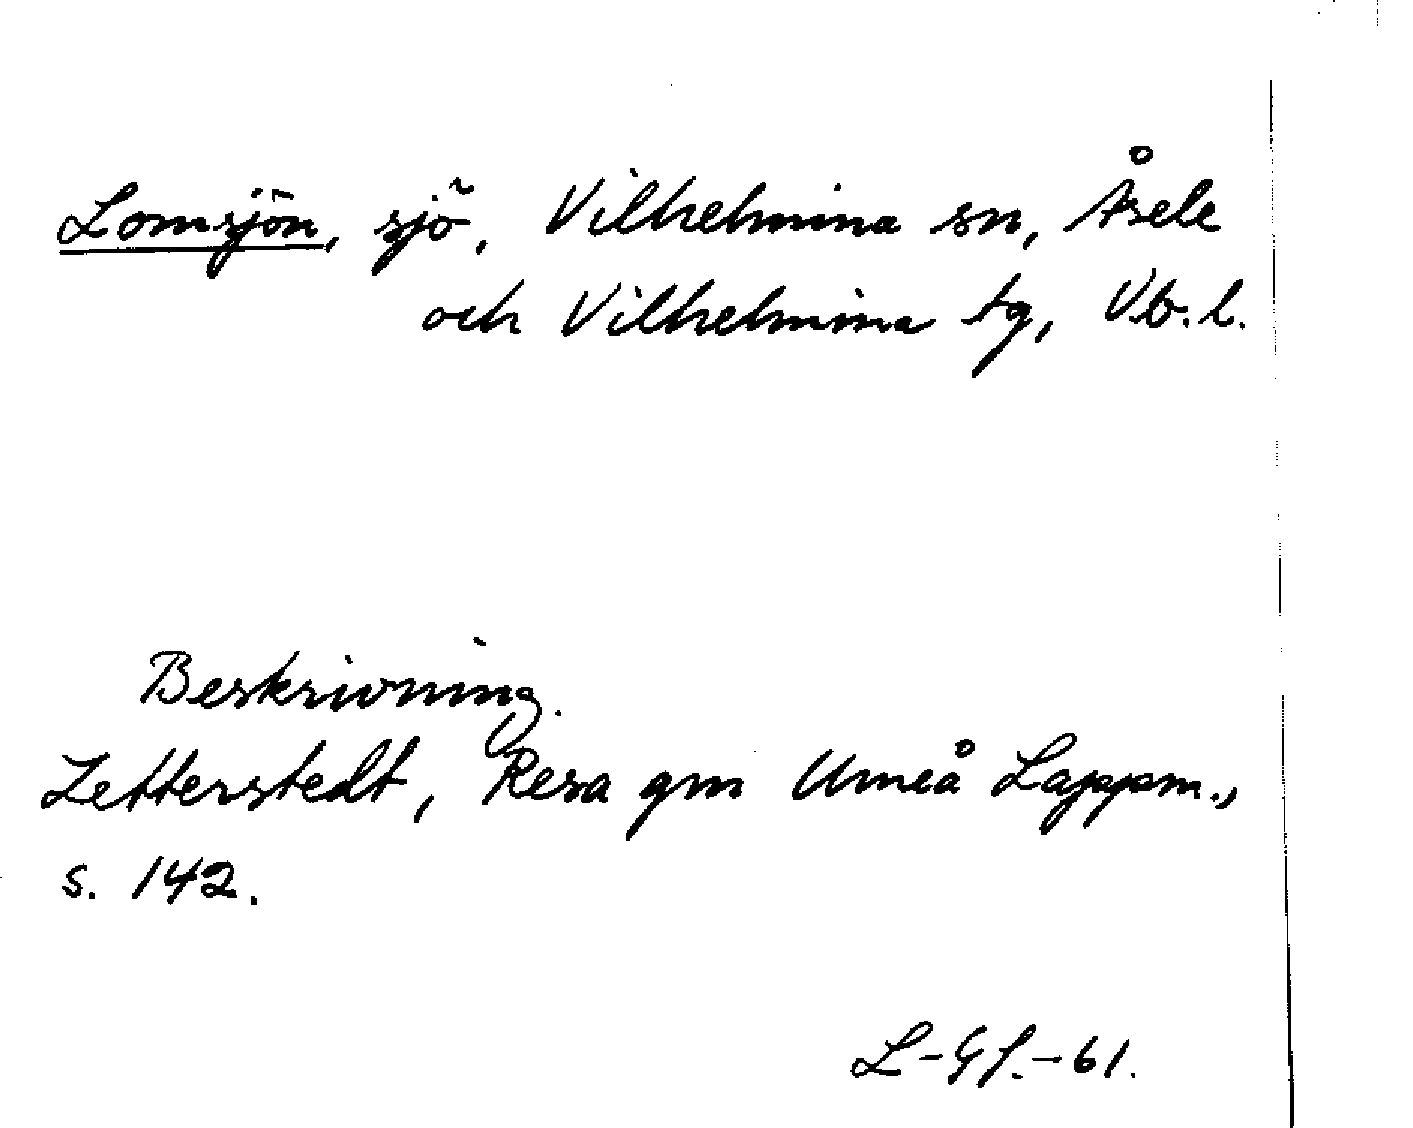 Lomsjön, sjö, Vilhelmina sn, Åsele
och Vilhelmina tg, Vb. l.
Beskrivning.
Zetterstedt, Resa gm Umeå Lappm.,
s. 142.
L-Gf.-61.